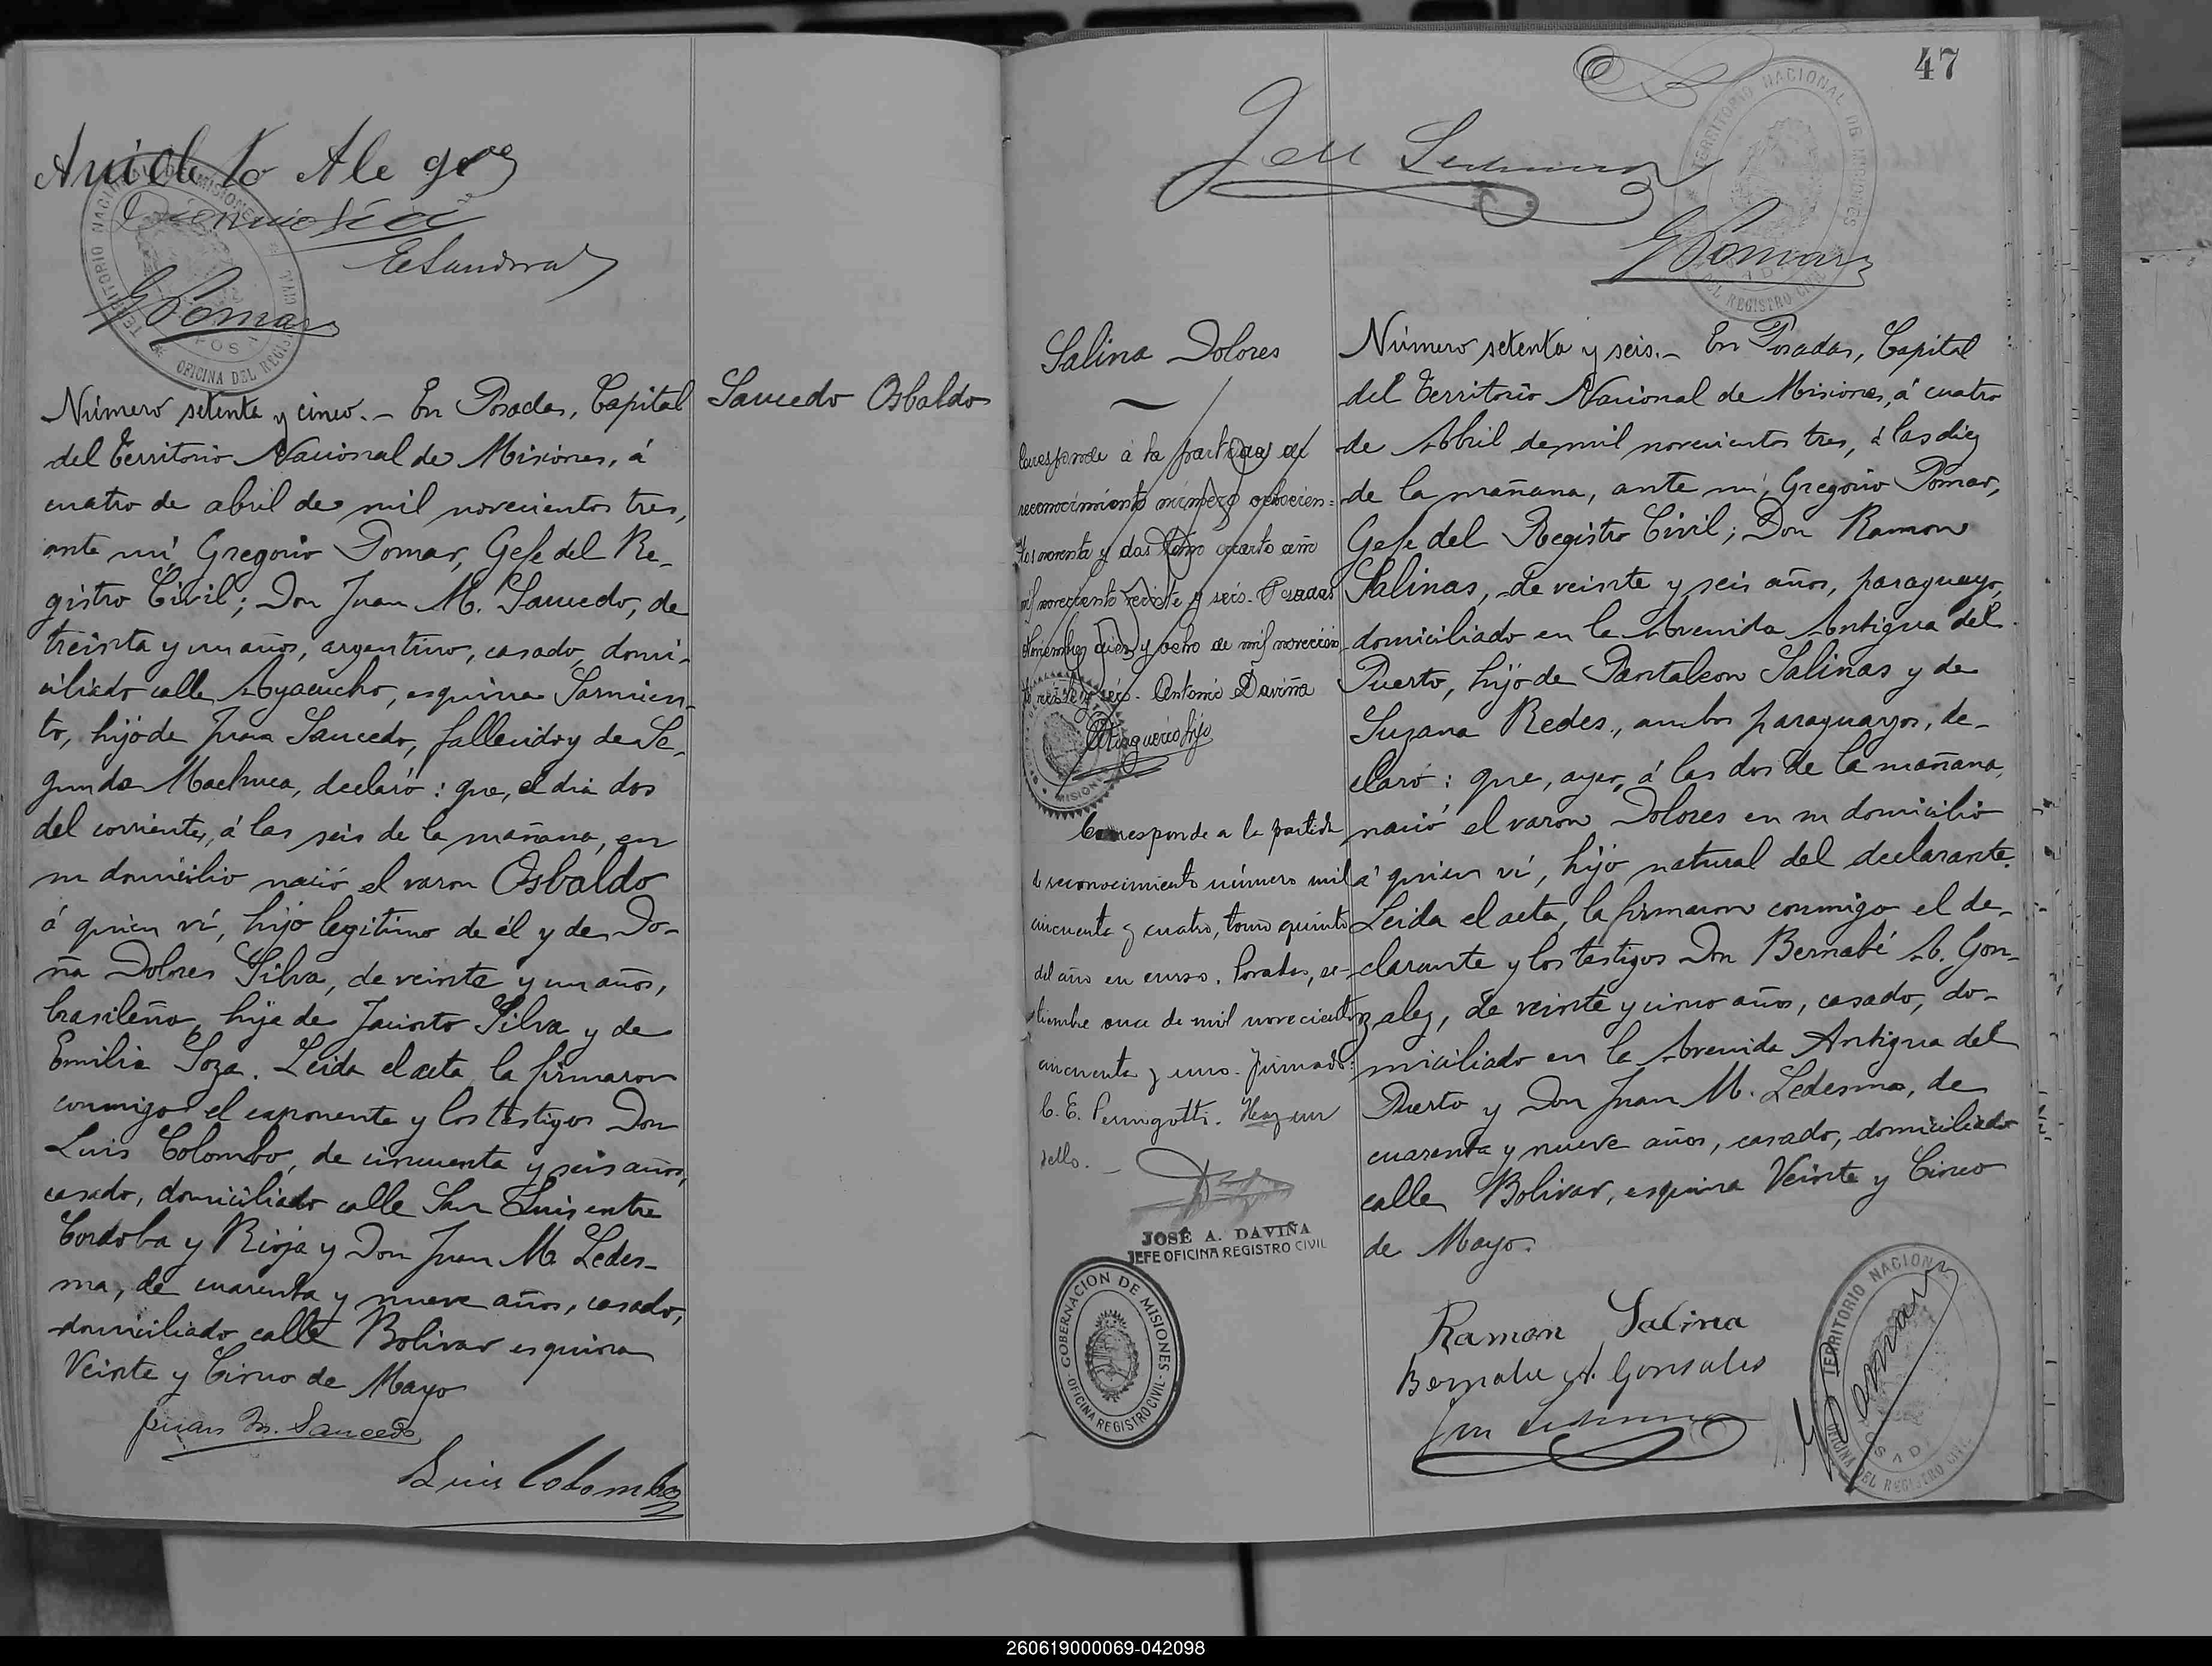 Aniceto Alegre
Dionisia
E Sandoval
G Pomar
TERRITORIO NACIONAL DE MISIONES
OFICINA DEL REGISTRO CIVIL
Saucedo Osbaldo
Número setenta y cinco. - En Posadas, Capital
del Territorio Nacional de Misiones, á
cuatro de abril de mil novecientos tres,
ante mí, Gregorio Pomar, Gefe del Re-
gistro Civil; Don Juan M. Saucedo, de
treinta y un años, argentino, casado, domi-
ciliado calle Ayacucho, esquina Sarmien-
to, hijo de Juan Saucedo, fallecido y de Se-
gunda Machuca, declaró: que, el dia dos
del corriente, á las seis de la mañana, en
su domicilio nació el varon Osbaldo
á quien ví, hijo legítimo de él y de Do-
ña Dolores Silva, de veinte y un años,
brasileña, hija de Jacinto Silva y de
Emilia Soza. Leida el acta, la firmaron
conmigo el exponente y los testigos Don
Luis Colombo, de cincuenta y seis años,
casado, domiciliado calle San Luis entre
Cordoba y Rioja y Don Juan M. Ledes-
ma, de cuarenta y nueve años, casado,
domiciliado calle Bolivar esquina
Veinte y Cinco de Mayo
Juan M. Saucedo
Luis Colombo
47
TERRITORIO NACIONAL DE MISIONES
OFICINA DEL REGISTRO CIVIL
Juan Ledesma
G Pomar
Salina Dolores
Corresponde a la partida de
reconocimiento número ochocien-
tos noventa y dos tomo cuarto año
mil novecientos veinte y seis. Posadas
Noviembre diez y ocho de mil novecien
to veinte y seis. Antonio Daviña
MISIONES
Corresponde a la partida
de reconocimiento número mil
cincuenta y cuatro, tomo quinto
del año en curso. Posadas, se-
tiembre once de mil novecientos
cincuenta y uno. firmado:
C. E. Perugotti. Hay un
sello. -
JOSÉ A. DAVIÑA
JEFE OFICINA REGISTRO CIVIL
GOBERNACION DE MISIONES
OFICINA REGISTRO CIVIL
Número setenta y seis. - En Posadas, Capital
del Territorio Nacional de Misiones, á cuatro
de Abril de mil novecientos tres, á las diez
de la mañana, ante mí, Gregorio Pomar,
Gefe del Registro Civil; Don Ramon
Salinas, de veinte y seis años, paraguayo,
domiciliado en la Avenida Antigua del
Puerto, hijo de Pantaleon Salinas y de
Suzana Redes, ambos paraguayos, de-
claró: que, ayer, á las dos de la mañana,
nació el varon Dolores en su domicilio
á quien ví, hijo natural del declarante.
Leida el acta, la firmaron conmigo el de-
clarante y los testigos Don Bernabé A. Gon-
zalez, de veinte y cinco años, casado, do-
miciliado en la Avenida Antigua del
Puerto y Don Juan M. Ledesma, de
cuarenta y nueve años, casado, domiciliado
calle Bolivar, esquina Veinte y Cinco
de Mayo.
Ramon Salina
Bernabe A. Gonsales
Juan Ledesma
G Pomar
TERRITORIO NACIONAL
OFICINA DEL REGISTRO CIVIL
260619000069-042098